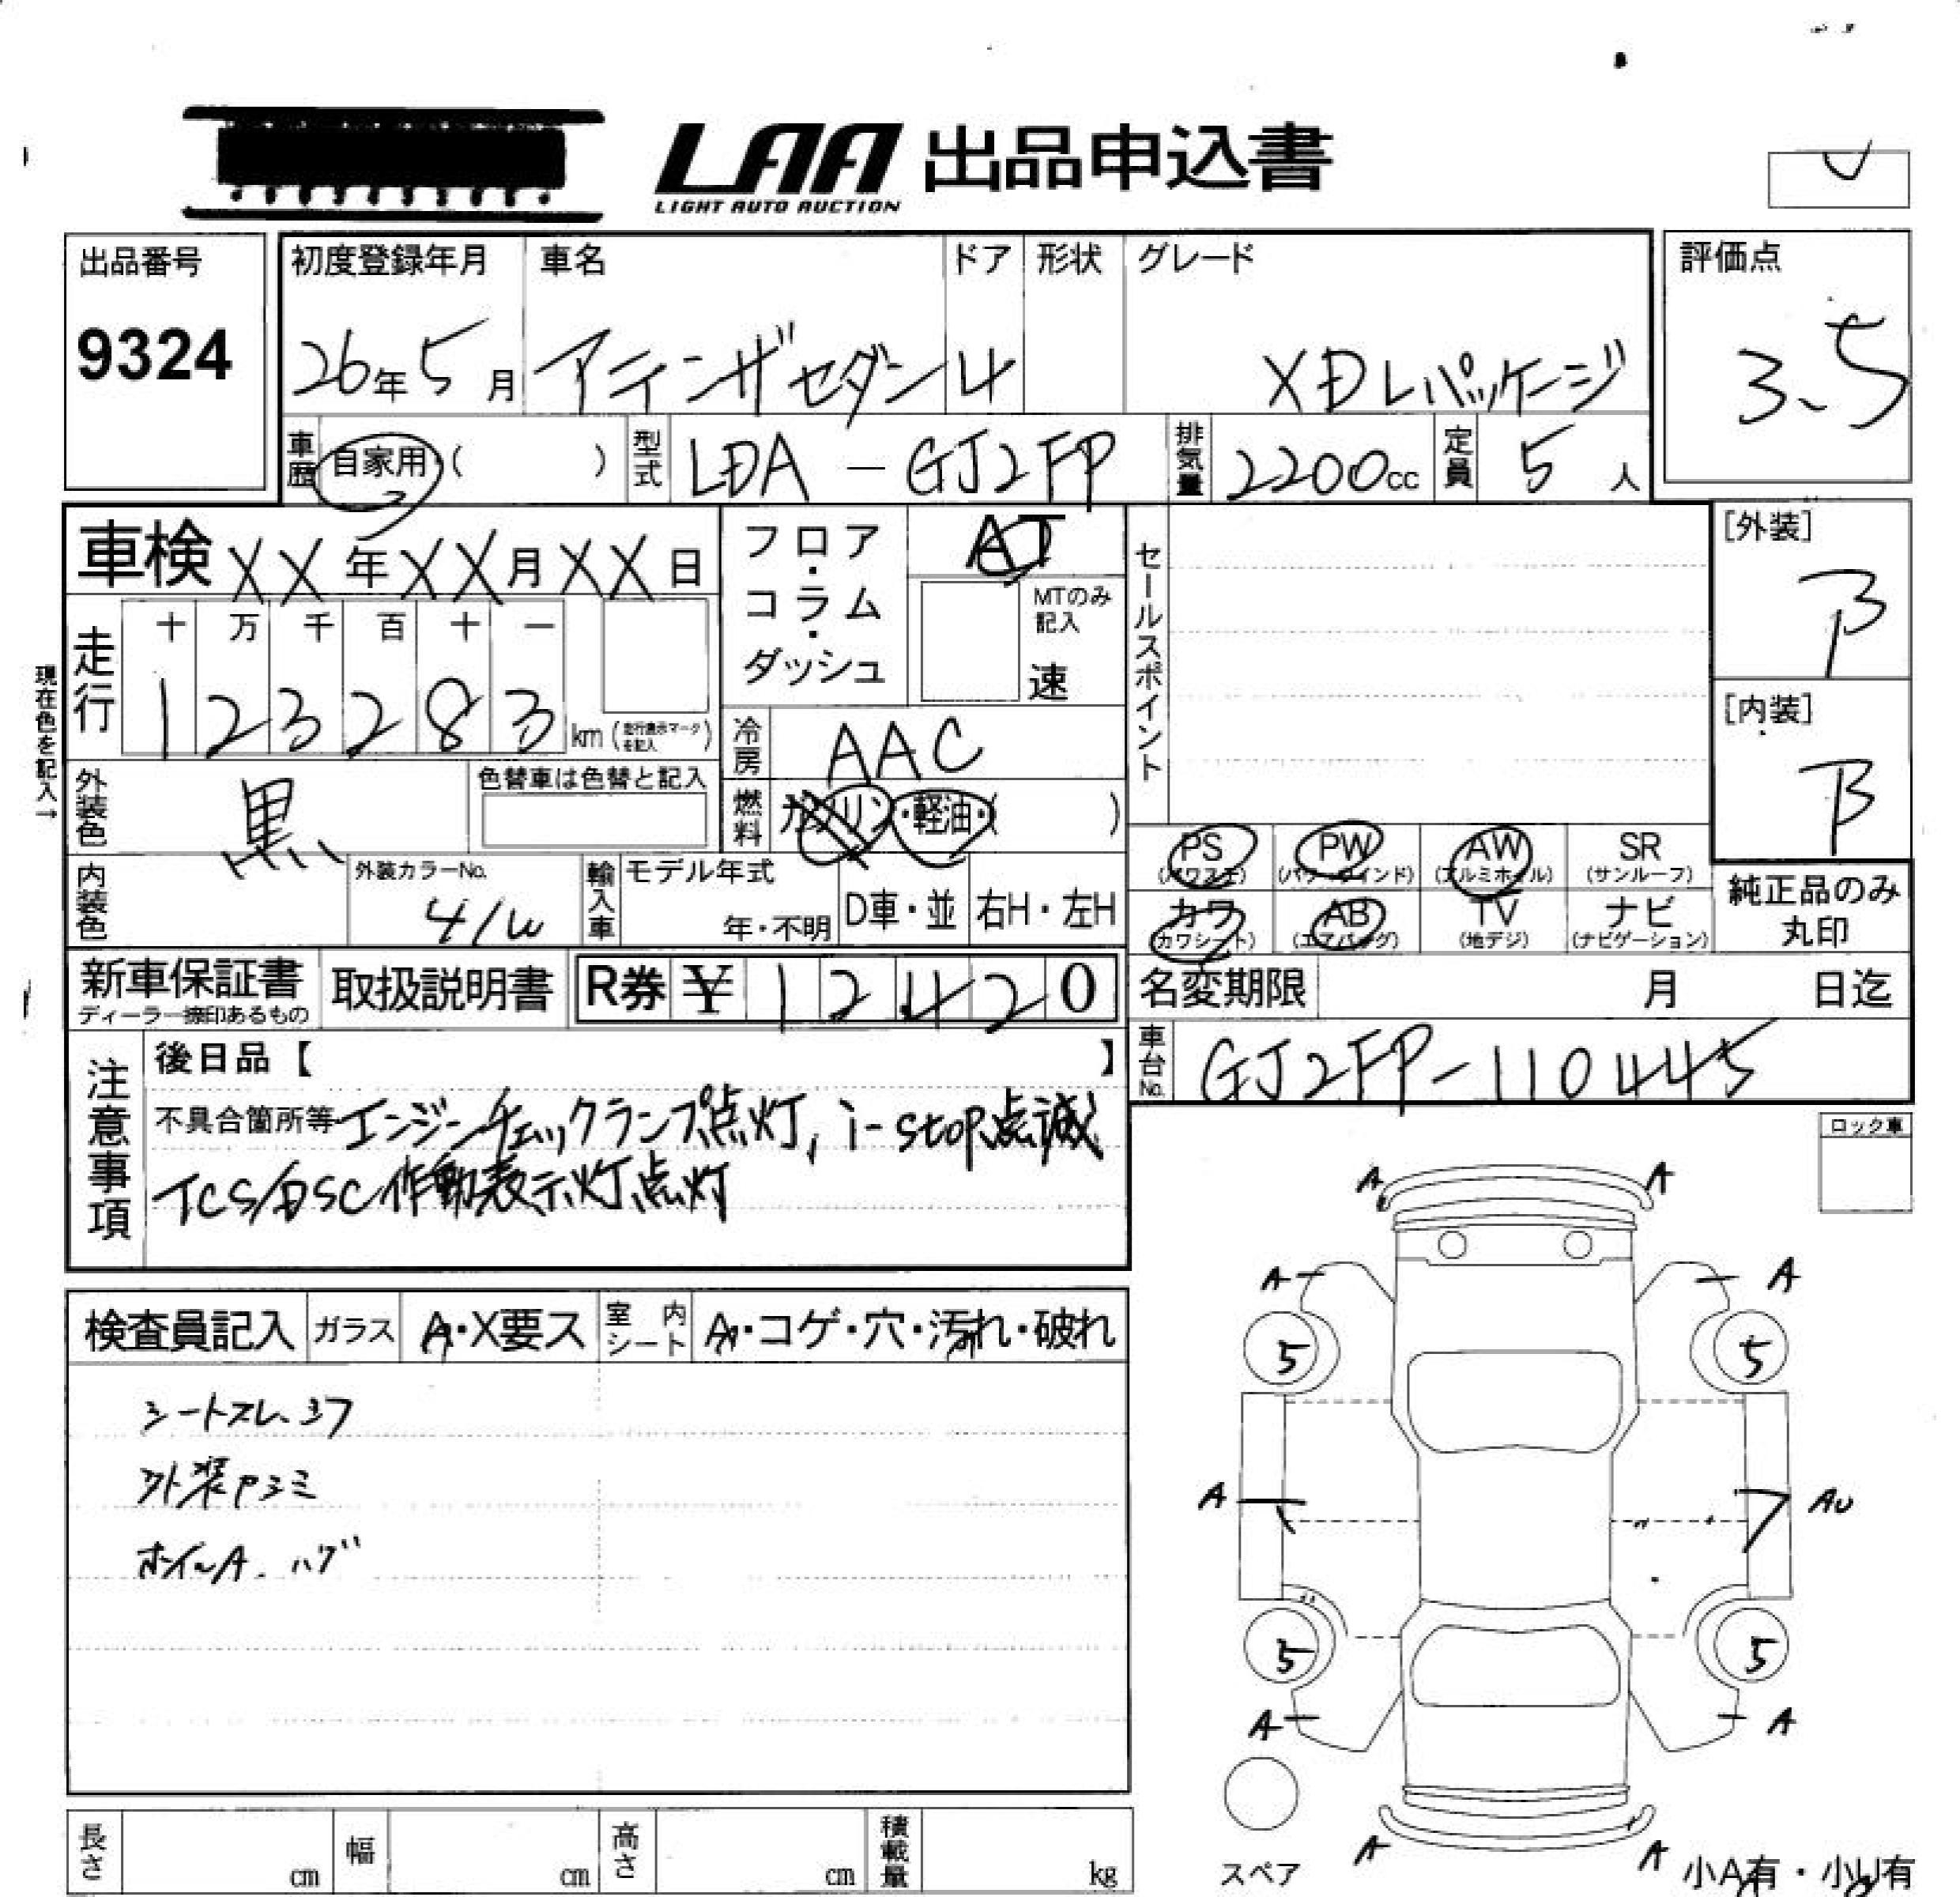 LAA 出品申込書
LIGHT AUTO AUCTION
出品番号
9324
初度登録年月
26年5月
車名
アテンザセダン
ドア
4
形状
グレード
XDLパッケージ
評価点
3.5
車歴 自家用・( )
型式 LDA-GJ2FP
排気量 2200cc
定員 5人
車検 XX年XX月XX日
フロア・コラム・ダッシュ
AT
MTのみ記入
速
セールスポイント
[外装]
B
[内装]
B
現在色を記入→
走行
十 万 千 百 十 一
1 2 3 2 8 3 km (走行表示マークを記入)
冷房 AAC
外装色 黒
色替車は色替と記入
燃料 ガソリン・軽油・( )
PS PW AW SR
(パワステ) (パワーウインド) (アルミホイル) (サンルーフ)
カワ AB TV ナビ
(カワシート) (エアバッグ) (地デジ) (ナビゲーション)
純正品のみ
丸印
内装色
外装カラーNo.
41W
輸入車
モデル年式
年・不明
D車・並
右H・左H
新車保証書
ディーラー捺印あるもの
取扱説明書
R券 ¥ 12420
名変期限 月 日迄
車台No. GJ2FP-110445
注意事項
後日品【 】
不具合箇所等 エンジンチェックランプ点灯, i-stop点滅
TCS/DSC作動表示灯点灯
ロック車
検査員記入
ガラス A・X要ス
室内シート A・コゲ・穴・汚れ・破れ
シートスレ、シワ
外装アルミ
ホイールA. ハゲ
A A
A A
5 5
A AU
5 5
A A
A A
スペア
小A有・小U有
長さ cm
幅 cm
高さ cm
積載量 kg